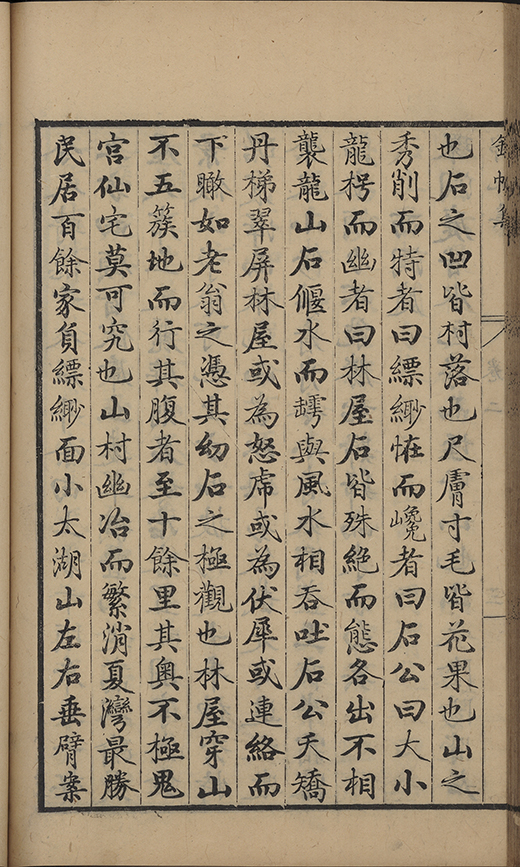 也石之凹皆村落也尺膚寸毛皆花果也山之
秀削而特者曰縹緲恠而巉者曰石公曰大小
龍枵而幽者曰林屋石皆殊絶而態各出不相
襲龍山石偃水而罅與風水相吞吐石公夭矯
丹梯翠屏林屋或為怒虎或為伏犀或連絡而
下瞰如老翁之憑其幼石之極觀也林屋穿山
不五簇地而行其腹者至十餘里其奧不極鬼
宮仙宅莫可究也山村幽冶而繁消夏灣最勝
民居百餘家負縹緲面小太湖山左右垂臂案